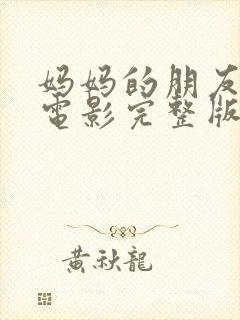 妈妈的朋友
電影完整版
黃秋龍